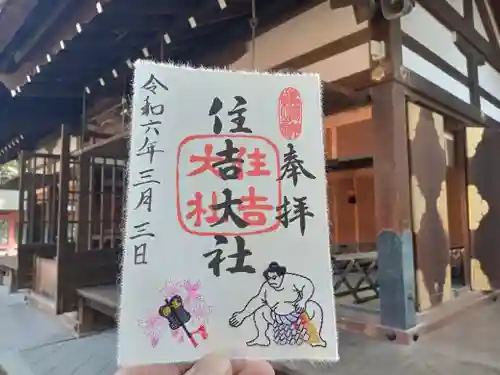 奉拝
住吉大社
住吉大社
令和六年三月三日